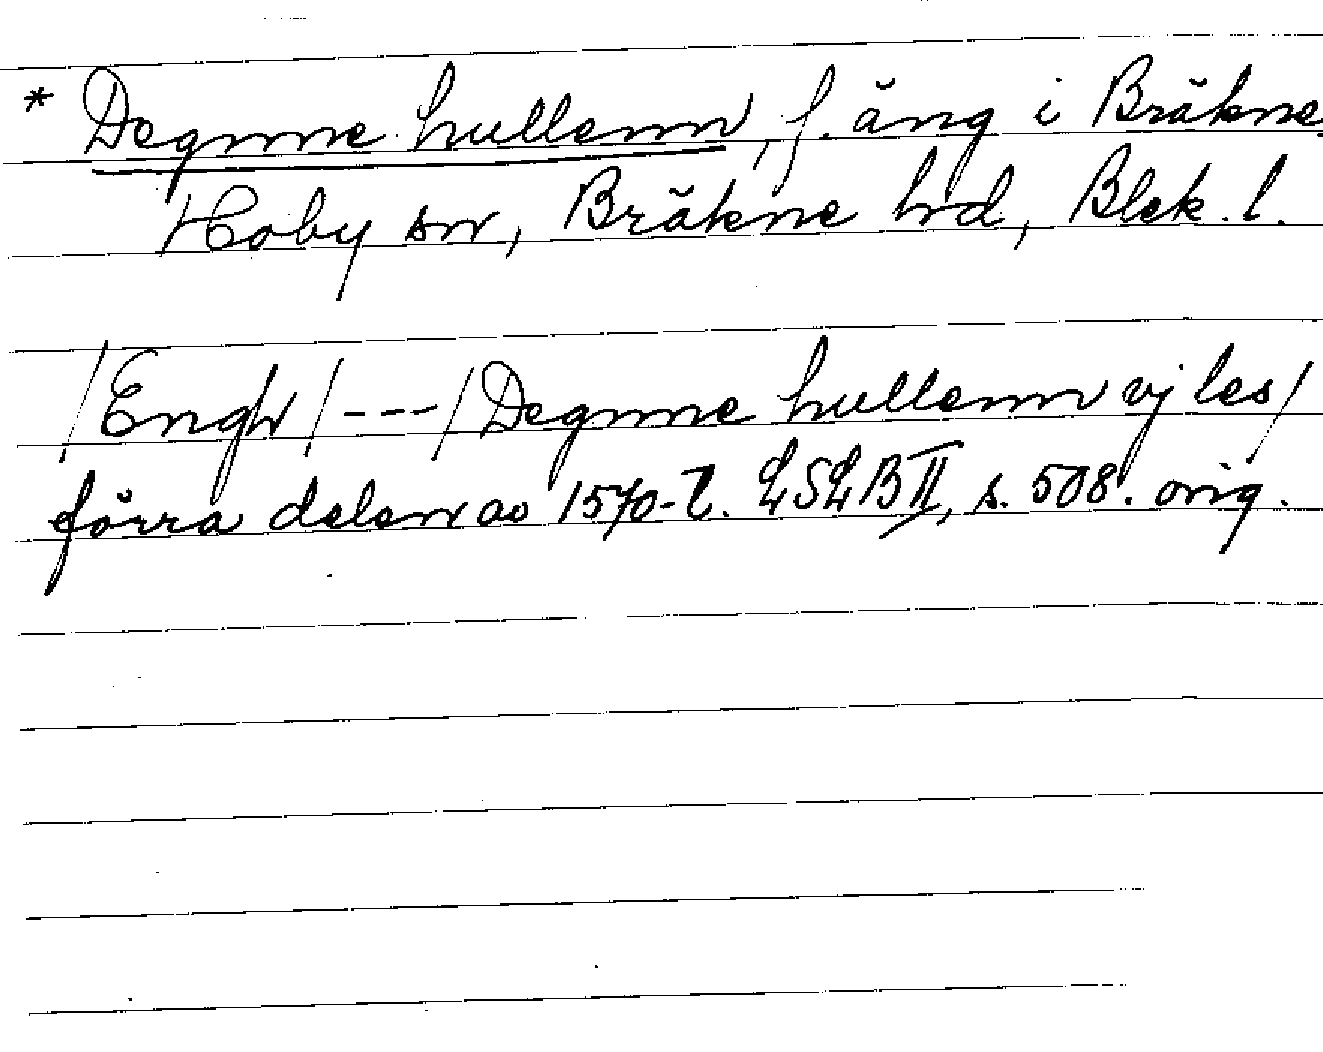 * Degnne hullenn, f. äng i Bräkne
Hoby sn, Bräkne hd, Blek. l.
/Engh/---/Degnne hullenn vj les/
förra delen av 1570-t. LSLB II, s. 508. orig.